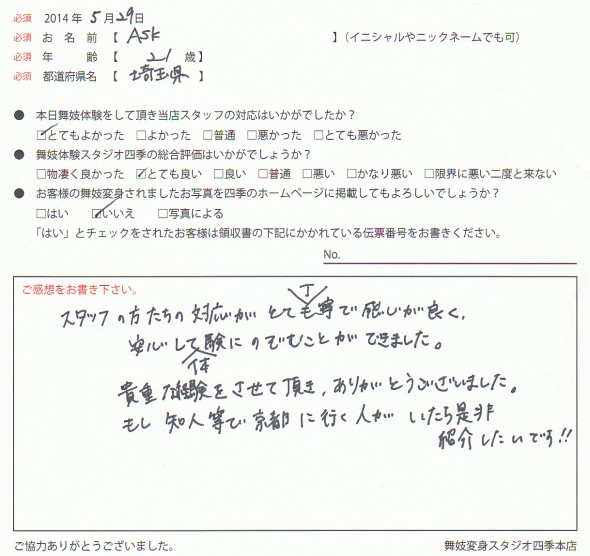 必須 2014年 5月29日
必須 お名前【 ASK 】(イニシャルやニックネームでも可)
必須 年齢【 21 歳】
必須 都道府県名【 埼玉県 】
● 本日舞妓体験をして頂き当店スタッフの対応はいかがでしたか?
☑とてもよかった □よかった □普通 □悪かった □とても悪かった
● 舞妓体験スタジオ四季の総合評価はいかがでしょうか?
□物凄く良かった ☑とても良い □良い □普通 □悪い □かなり悪い □限界に悪い二度と来ない
● お客様の舞妓変身されましたお写真を四季のホームページに掲載してもよろしいでしょうか?
□はい ☑いいえ □写真による
「はい」とチェックをされたお客様は領収書の下記にかかれている伝票番号をお書きください。
No.
ご感想をお書き下さい。
スタッフの方たちの対応がとても丁寧で感じが良く、
安心して体験にのぞむことができました。
貴重な経験をさせて頂き、ありがとうございました。
もし知人等で京都に行く人がいたら是非
紹介したいです!!
ご協力ありがとうございました。
舞妓変身スタジオ四季本店